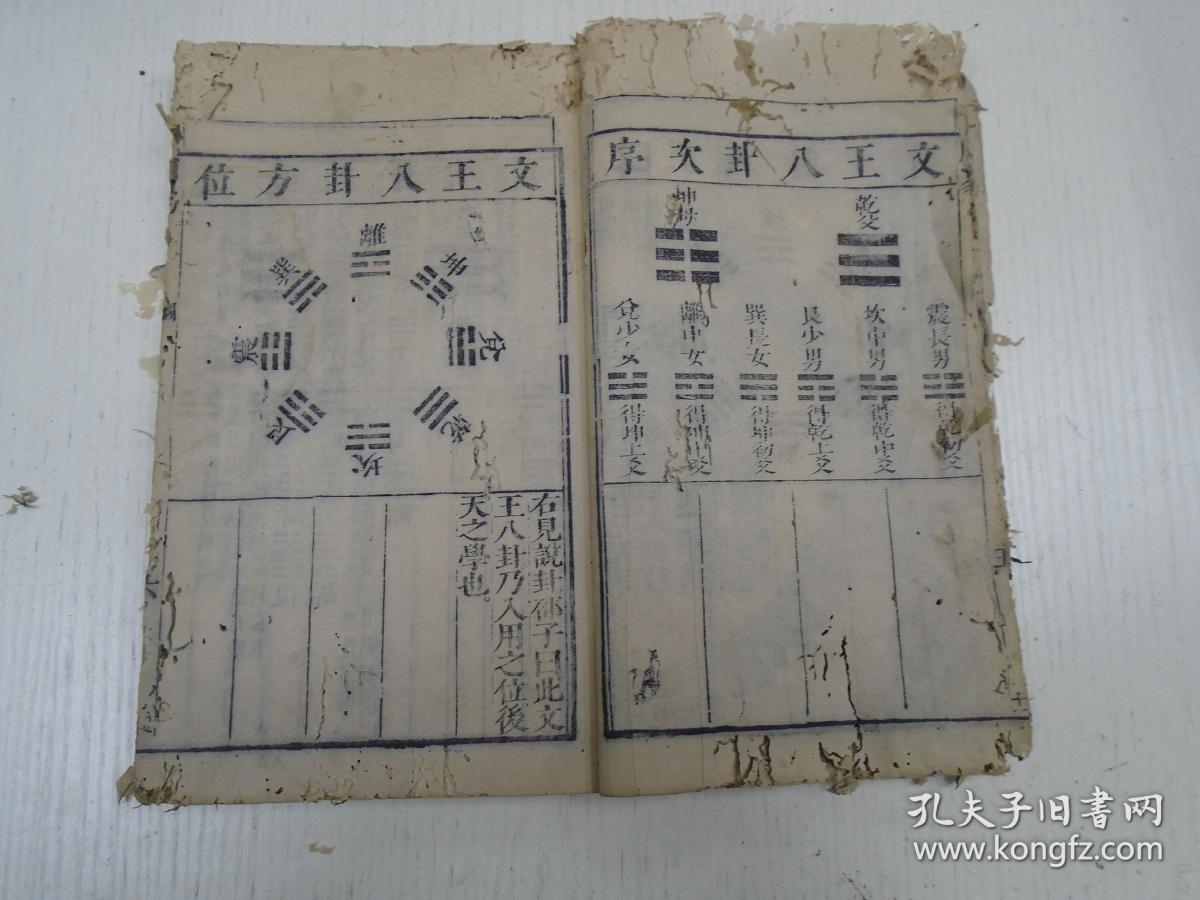 文王八卦次序
乾父
坤母
震長男
得乾初爻
坎中男
得乾中爻
艮少男
得乾上爻
巽長女
得坤初爻
離中女
得坤中爻
兌少女
得坤上爻
文王八卦方位
離
坤
兌
乾
坎
艮
震
巽
右見說卦邵子曰此文
王八卦乃入用之位後
天之學也
孔夫子旧书网
www.kongfz.com